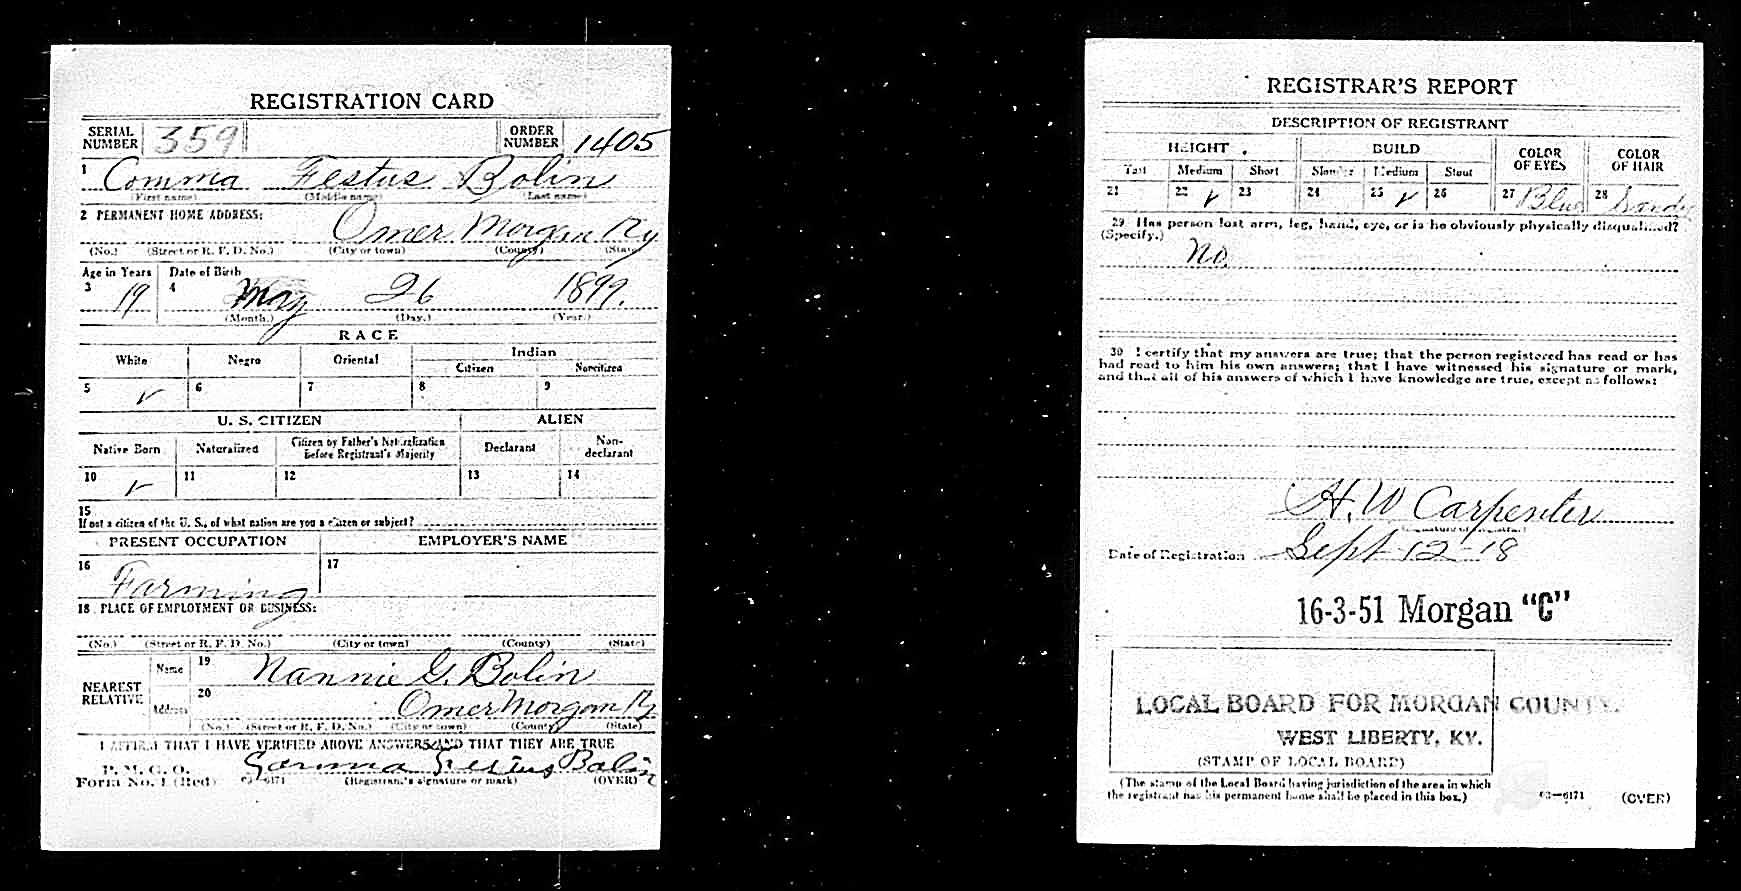 REGISTRATION CARD
SERIAL NUMBER 359 ORDER NUMBER 1405
1 Comma Festus Bolin
(First name) (Middle name) (Last name)
2 PERMANENT HOME ADDRESS:
Omer Morgan Ky
(No.) (Street or R. F. D. No.) (City or town) (County) (State)
Age in Years Date of Birth
3 19 4 May 26 1899.
(Month.) (Day.) (Year.)
RACE
White Negro Oriental Indian
Citizen Noncitizen
5 ✓ 6 7 8 9
U. S. CITIZEN ALIEN
Native Born Naturalized Citizen by Father's Naturalization Before Registrant's Majority Declarant Non-declarant
10 ✓ 11 12 13 14
15
If not a citizen of the U. S., of what nation are you a citizen or subject?
PRESENT OCCUPATION EMPLOYER'S NAME
16 Farming 17
18 PLACE OF EMPLOYMENT OR BUSINESS:
(No.) (Street or R. F. D. No.) (City or town) (County) (State)
NEAREST RELATIVE Name 19 Nannie G. Bolin
Address 20 Omer Morgan Ky
(No.) (Street or R. F. D. No.) (City or town) (County) (State)
I AFFIRM THAT I HAVE VERIFIED ABOVE ANSWERS AND THAT THEY ARE TRUE
P. M. G. O.
Form No. 1 (Red) 03-6171 Comma Festus Bolin
(Registrant's signature or mark) (OVER)
REGISTRAR'S REPORT
DESCRIPTION OF REGISTRANT
HEIGHT BUILD COLOR OF EYES COLOR OF HAIR
Tall Medium Short Slender Medium Stout
21 22 ✓ 23 24 25 ✓ 26 27 Blue 28
29 Has person lost arm, leg, hand, eye, or is he obviously physically disqualified?
(Specify.)
No
30 I certify that my answers are true; that the person registered has read or has
had read to him his own answers; that I have witnessed his signature or mark,
and that all of his answers of which I have knowledge are true, except as follows:
H. W Carpenter
Date of Registration Sept 12-18
16-3-51 Morgan "C"
LOCAL BOARD FOR MORGAN COUNTY.
WEST LIBERTY, KY.
(STAMP OF LOCAL BOARD)
(The stamp of the Local Board having jurisdiction of the area in which
the registrant has his permanent home shall be placed in this box.)
03-6171 (OVER)